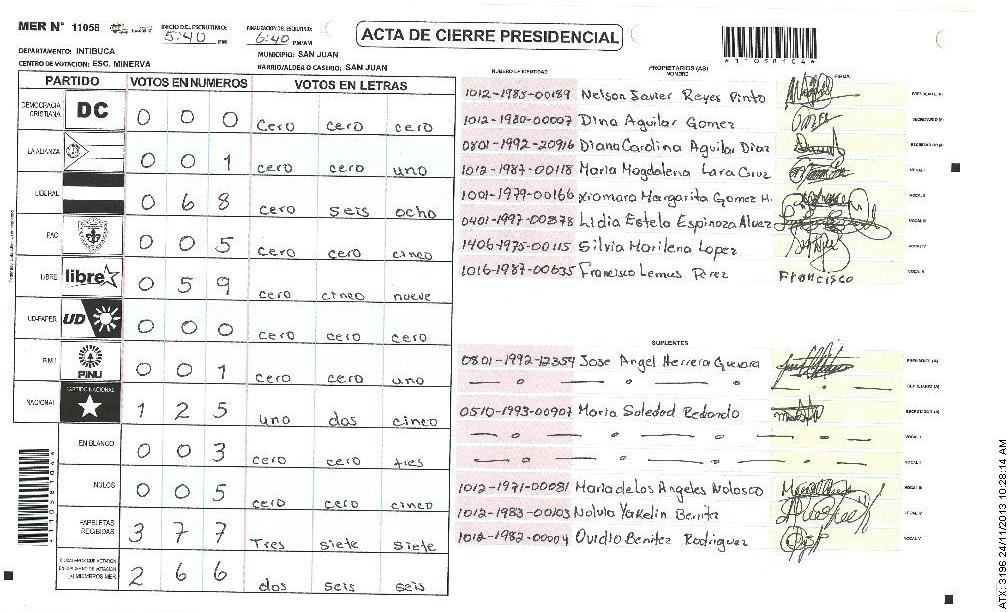 MER N° 11058
INICIO DEL ESCRUTINIO: 5:40 PM
FINALIZACION DEL ESCRUTINIO: 6:40 PM/AM
ACTA DE CIERRE PRESIDENCIAL
*11058104*
DEPARTAMENTO: INTIBUCA
MUNICIPIO: SAN JUAN
CENTRO DE VOTACION: ESC. MINERVA
BARRIO/ALDEA O CASERIO: SAN JUAN
PARTIDO VOTOS EN NUMEROS VOTOS EN LETRAS
DEMOCRACIA CRISTIANA DC 0 0 0 cero cero cero
LA ALIANZA 0 0 1 cero cero uno
LIBERAL 0 6 8 cero seis ocho
PAC 0 0 5 cero cero cinco
LIBRE libre 0 5 9 cero cinco nueve
UD-FAPER UD 0 0 0 cero cero cero
PINU PINU 0 0 1 cero cero uno
NACIONAL PARTIDO NACIONAL 1 2 5 uno dos cinco
EN BLANCO 0 0 3 cero cero tres
NULOS 0 0 5 cero cero cinco
PAPELETAS RECIBIDAS 3 7 7 Tres siete siete
2 6 6 dos seis seis
*11058104*
NUMERO DE IDENTIDAD PROPIETARIOS (AS) NOMBRE FIRMA
1012-1985-00189 Nelson Javier Reyes Pinto PRESIDENTE (A)
1012-1980-00007 Dina Aguilar Gomez SECRETARIO (A)
0801-1992-20916 Diana Carolina Aguilar Diaz
1012-1987-00118 Maria Magdalena Lara Cruz VOCAL I
1001-1979-00166 Xiomara Margarita Gomez M. VOCAL II
0401-1997-00878 Lidia Estela Espinoza Alvez VOCAL III
1406-1975-00115 Silvia Marilena Lopez VOCAL IV
1016-1987-00635 Francisco Lemus Perez Francisco VOCAL V
SUPLENTES
0801-1992-12354 Jose Angel Herrera Guevara PRESIDENTE (A)
0510-1993-00907 Maria Soledad Redondo
VOCAL I
VOCAL II
1012-1971-00081 Maria de los Angeles Nolasco VOCAL III
1012-1983-00103 Nolvia Yakelin Benita VOCAL IV
1012-1982-00004 Ovidio Benitez Rodriguez VOCAL V
ATX: 3196 24/11/2013 10:28:14 AM